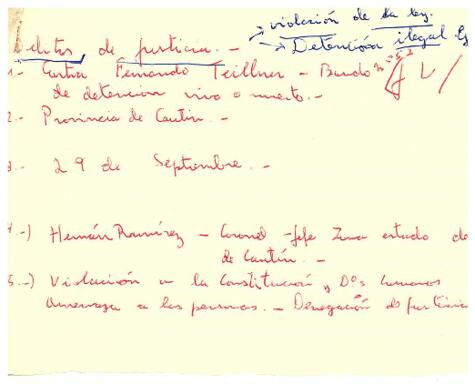 → violación de la ley.
Delitos de justicia. - → Detención ilegal
1- Contra Fernando Teillner - Bando
de detencion vivo o muerto. -
2.- Provincia de Cautín. -
3. - 29 de Septiembre. -
4.-) Hernán Ramírez - Coronel - Jefe Zona estado de
de Cautín. -
5.-) Violación a la Constitución y D°s humanos
Amenaza a las personas. - Denegación de justicia